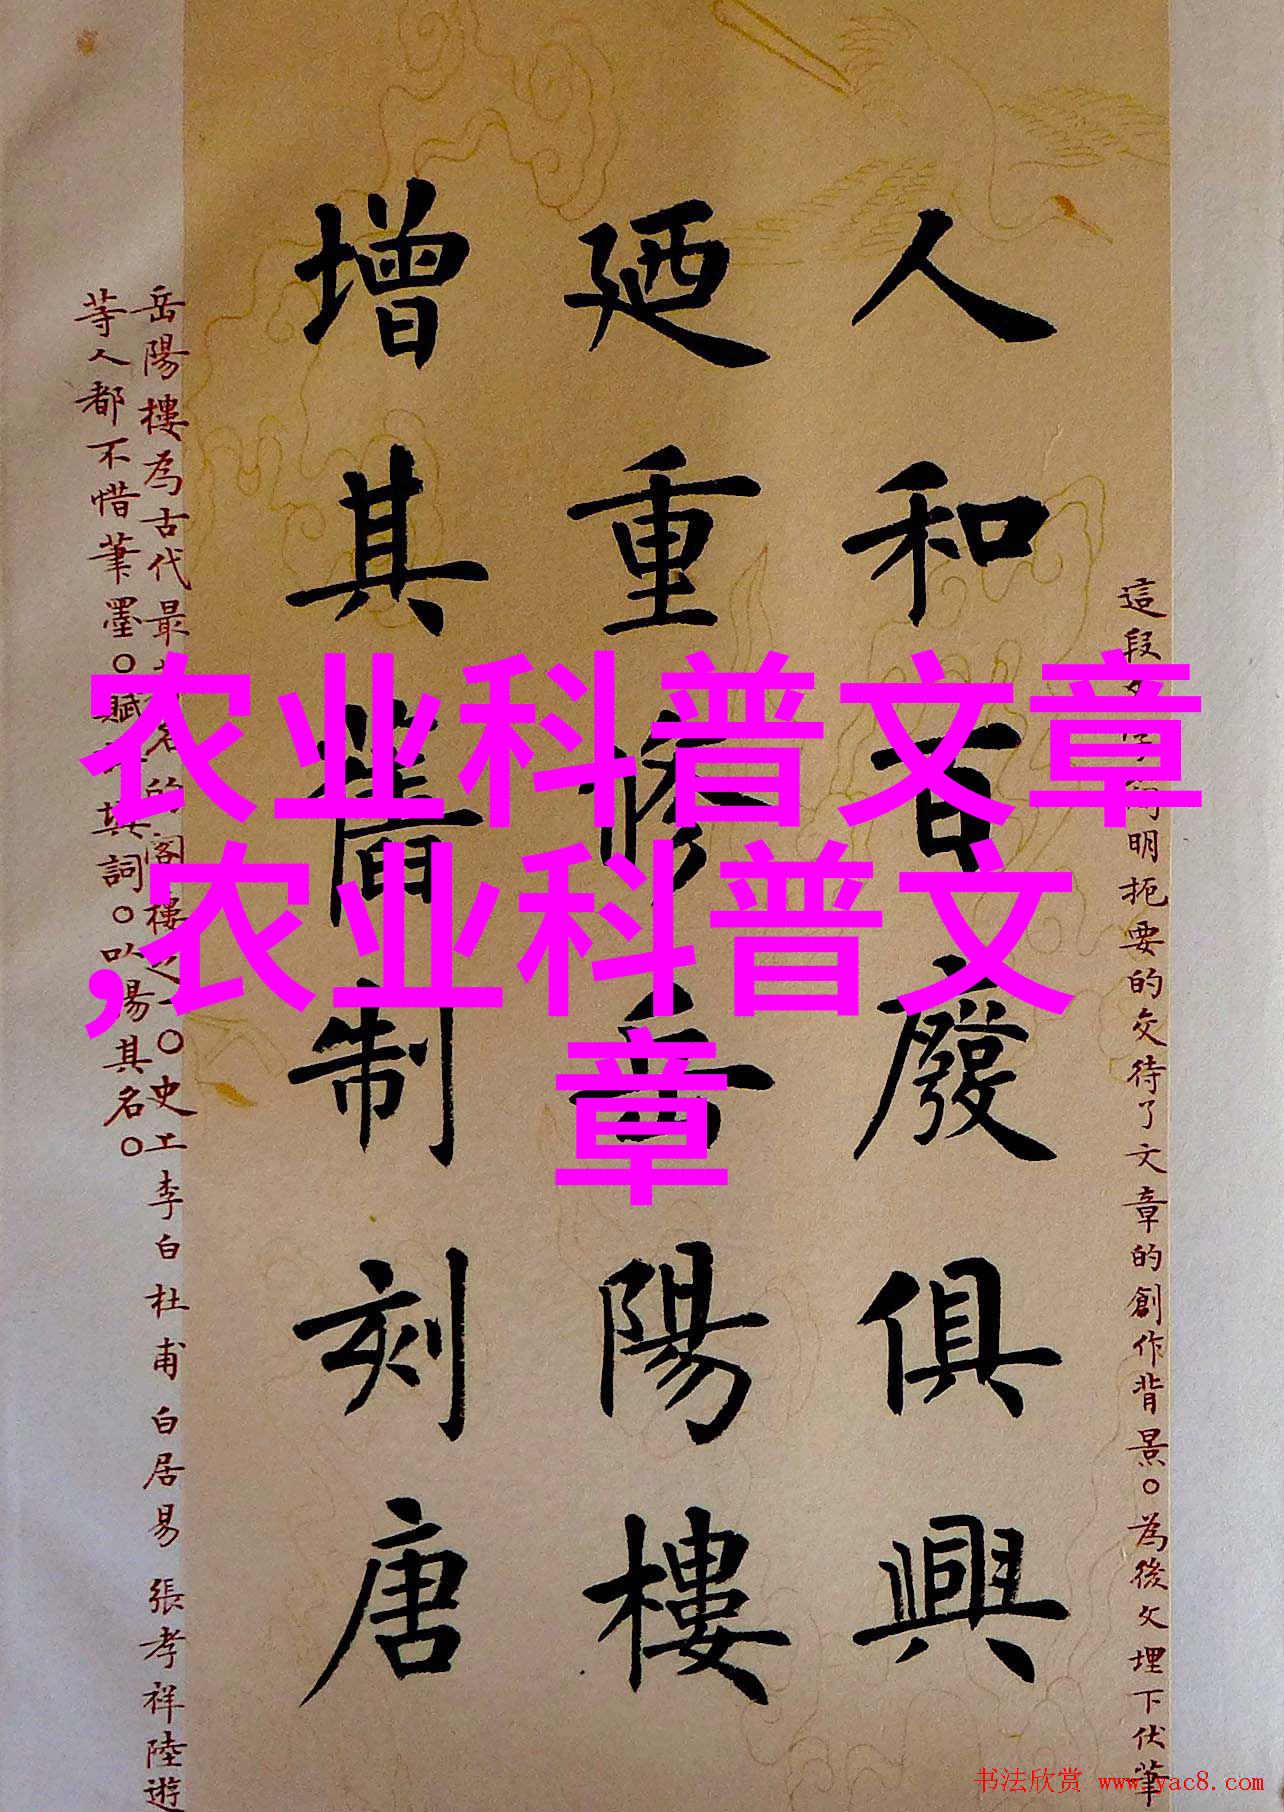 人和百廢俱興
廼重修岳陽樓
增其舊制刻唐
這段
明扼要的交待了文章的創作背景。為後文埋下伏筆
岳陽樓為古代最
名的閣樓之一。史上李白杜甫白居易張孝祥陸遊
等人都不惜筆墨。賦
其詞。以揚其名。
农业科普文章
,农业科普文
章
书法欣赏 www.yac8.com